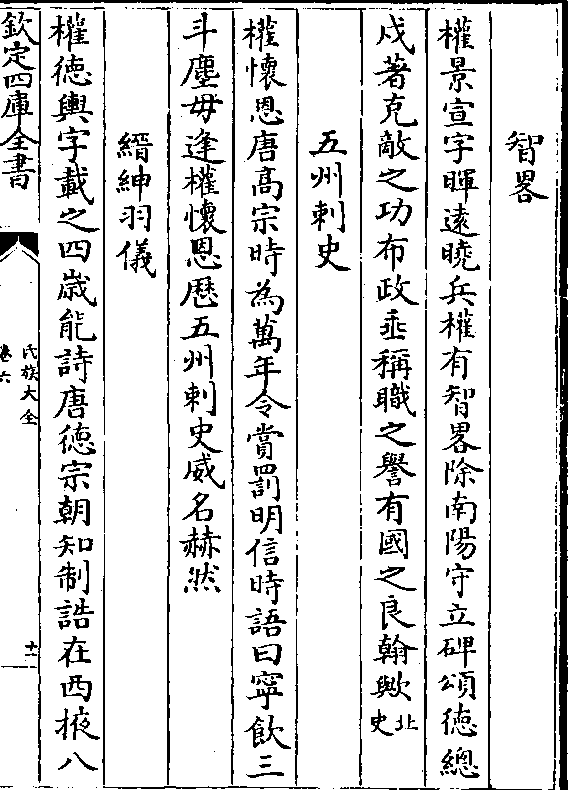 智畧
權景宣字暉遠曉兵權有智畧除南陽守立碑頌徳總
戍著克敵之功布政垂稱職之譽有國之良翰歟北史
五州刺史
權懷恩唐髙宗時為萬年令賞罰明信時語曰寧飲三
斗塵毋逢權懷恩歴五州刺史威名赫然
縉紳羽儀
權徳輿字載之四嵗能詩唐徳宗朝知制誥在西掖八
欽定四庫全書
氏族大全
卷六
十二